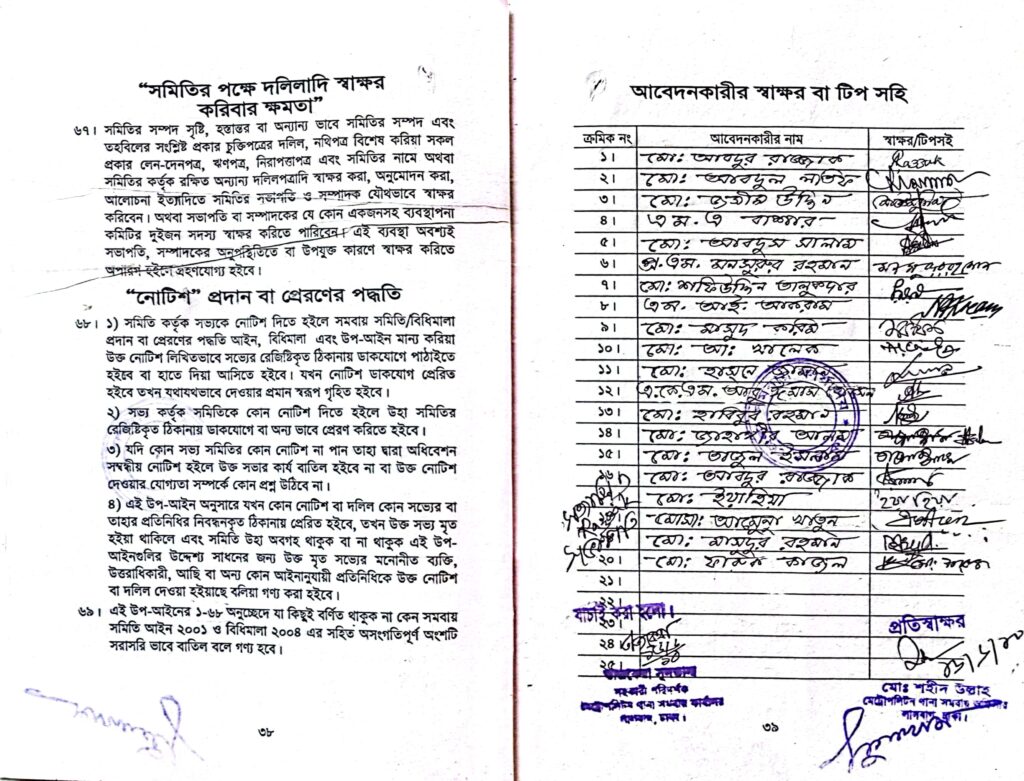 “সমিতির পক্ষে দলিলাদি স্বাক্ষর
করিবার ক্ষমতা”
৬৭। সমিতির সম্পদ সৃষ্টি, হস্তান্তর বা অন্যান্য ভাবে সমিতির সম্পদ এবং
তহবিলের সংশ্লিষ্ট প্রকার চুক্তিপত্রের দলিল, নথিপত্র বিশেষ করিয়া সকল
প্রকার লেন-দেনপত্র, ঋণপত্র, নিরাপত্তাপত্র এবং সমিতির নামে অথবা
সমিতির কর্তৃক রক্ষিত অন্যান্য দলিলপত্রাদি স্বাক্ষর করা, অনুমোদন করা,
আলোচনা ইত্যাদিতে সমিতির সভাপতি ও সম্পাদক যৌথভাবে স্বাক্ষর
করিবেন। অথবা সভাপতি বা সম্পাদকের যে কোন একজনসহ ব্যবস্থাপনা
কমিটির দুইজন সদস্য স্বাক্ষর করিতে পারিবেন। এই ব্যবস্থা অবশ্যই
সভাপতি, সম্পাদকের অনুপস্থিতিতে বা উপযুক্ত কারণে স্বাক্ষর করিতে
অপারগ হইলে গ্রহণযোগ্য হইবে।
“নোটিশ” প্রদান বা প্রেরণের পদ্ধতি
৬৮। ১) সমিতি কর্তৃক সভ্যকে নোটিশ দিতে হইলে সমবায় সমিতি/বিধিমালা
প্রদান বা প্রেরণের পদ্ধতি আইন, বিধিমালা এবং উপ-আইন মান্য করিয়া
উক্ত নোটিশ লিখিতভাবে সভ্যের রেজিষ্ট্রিকৃত ঠিকানায় ডাকযোগে পাঠাইতে
হইবে বা হাতে দিয়া আসিতে হইবে। যখন নোটিশ ডাকযোগ প্রেরিত
হইবে তখন যথাযথভাবে দেওয়ার প্রমান স্বরূপ গৃহিত হইবে।
২) সভ্য কর্তৃক সমিতিকে কোন নোটিশ দিতে হইলে উহা সমিতির
রেজিষ্ট্রিকৃত ঠিকানায় ডাকযোগে বা অন্য ভাবে প্রেরণ করিতে হইবে।
৩) যদি কোন সভ্য সমিতির কোন নোটিশ না পান তাহা দ্বারা অধিবেশন
সম্বন্ধীয় নোটিশ হইলে উক্ত সভার কার্য বাতিল হইবে না বা উক্ত নোটিশ
দেওয়ার যোগ্যতা সম্পর্কে কোন প্রশ্ন উঠিবে না।
৪) এই উপ-আইন অনুসারে যখন কোন নোটিশ বা দলিল কোন সভ্যের বা
তাহার প্রতিনিধির নিবন্ধনকৃত ঠিকানায় প্রেরিত হইবে, তখন উক্ত সভ্য মৃত
হইয়া থাকিলে এবং সমিতি উহা অবগহ থাকুক বা না থাকুক এই উপ-
আইনগুলির উদ্দেশ্য সাধনের জন্য উক্ত মৃত সভ্যের মনোনীত ব্যক্তি,
উত্তরাধিকারী, আছি বা অন্য কোন আইনানুযায়ী প্রতিনিধিকে উক্ত নোটিশ
বা দলিল দেওয়া হইয়াছে বলিয়া গণ্য করা হইবে।
৬৯। এই উপ-আইনের ১-৬৮ অনুচ্ছেদে যা কিছুই বর্ণিত থাকুক না কেন সমবায়
সমিতি আইন ২০০১ ও বিধিমালা ২০০৪ এর সহিত অসংগতিপূর্ণ অংশটি
সরাসরি ভাবে বাতিল বলে গণ্য হবে।
৩৮
আবেদনকারীর স্বাক্ষর বা টিপ সহি
ক্রমিক নং আবেদনকারীর নাম স্বাক্ষর/টিপসই
১। মো: আবদুর রাজ্জাক Razzak
২। মো: আবদুল লতিফ
৩। মো: জসীম উদ্দিন
৪। এ.ম. এ বাশার
৫। মো: আবদুস সালাম
৬। এ.এম. মনসুরুর রহমান
৭। মো: শফিউদ্দিন তালুকদার
৮। এম. আই. আকরাম
৯। মো: মাসুদ করিম
১০। মো: আ: খালেক
১১। মো:
১২। এ.কে.এম.
১৩। মো: হাবিবুর রহমান
১৪। মো: জাহাঙ্গীর আলম
১৫। মো: তাজুল ইসলাম
১৬। মো: আবদুর রাজ্জাক
মো: ইয়াহিয়া ইয়াহিয়া
মোসা: আমেনা খাতুন
মো: মাসুদুর রহমান
২০। মো: ফারুক
২১।
২২।
যাচাই করা হলো।
২৩।
২৪
২৫।
সহকারী পরিদর্শক
মেট্রোপলিটন থানা সমবায় কার্যালয়
লালবাগ, ঢাকা।
প্রতিস্বাক্ষর
মোঃ শহীদ উল্লাহ
মেট্রোপলিটন থানা সমবায়
লালবাগ, ঢাকা।
৩৯